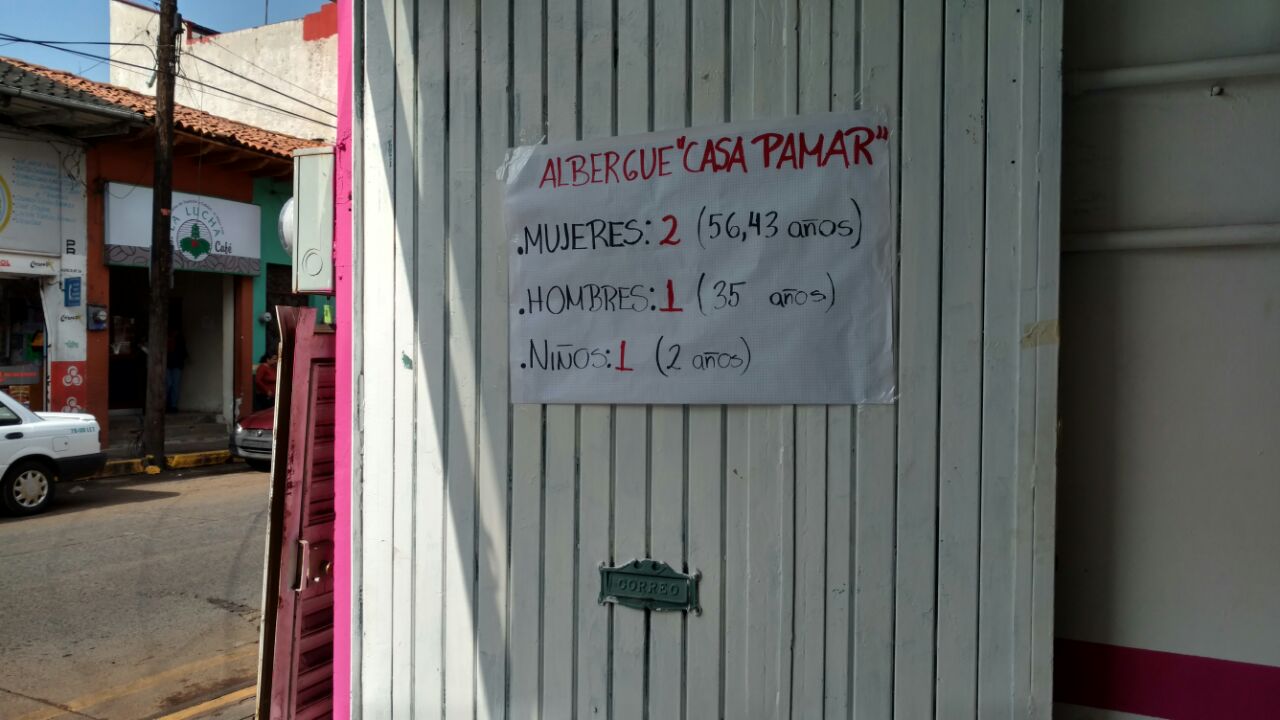 ALBERGUE "CASA PAMAR"
.MUJERES: 2 (56,43 años)
.HOMBRES: 1 (35 años)
.NIÑOS: 1 (2 años)
CORREO
LUCHA
Café